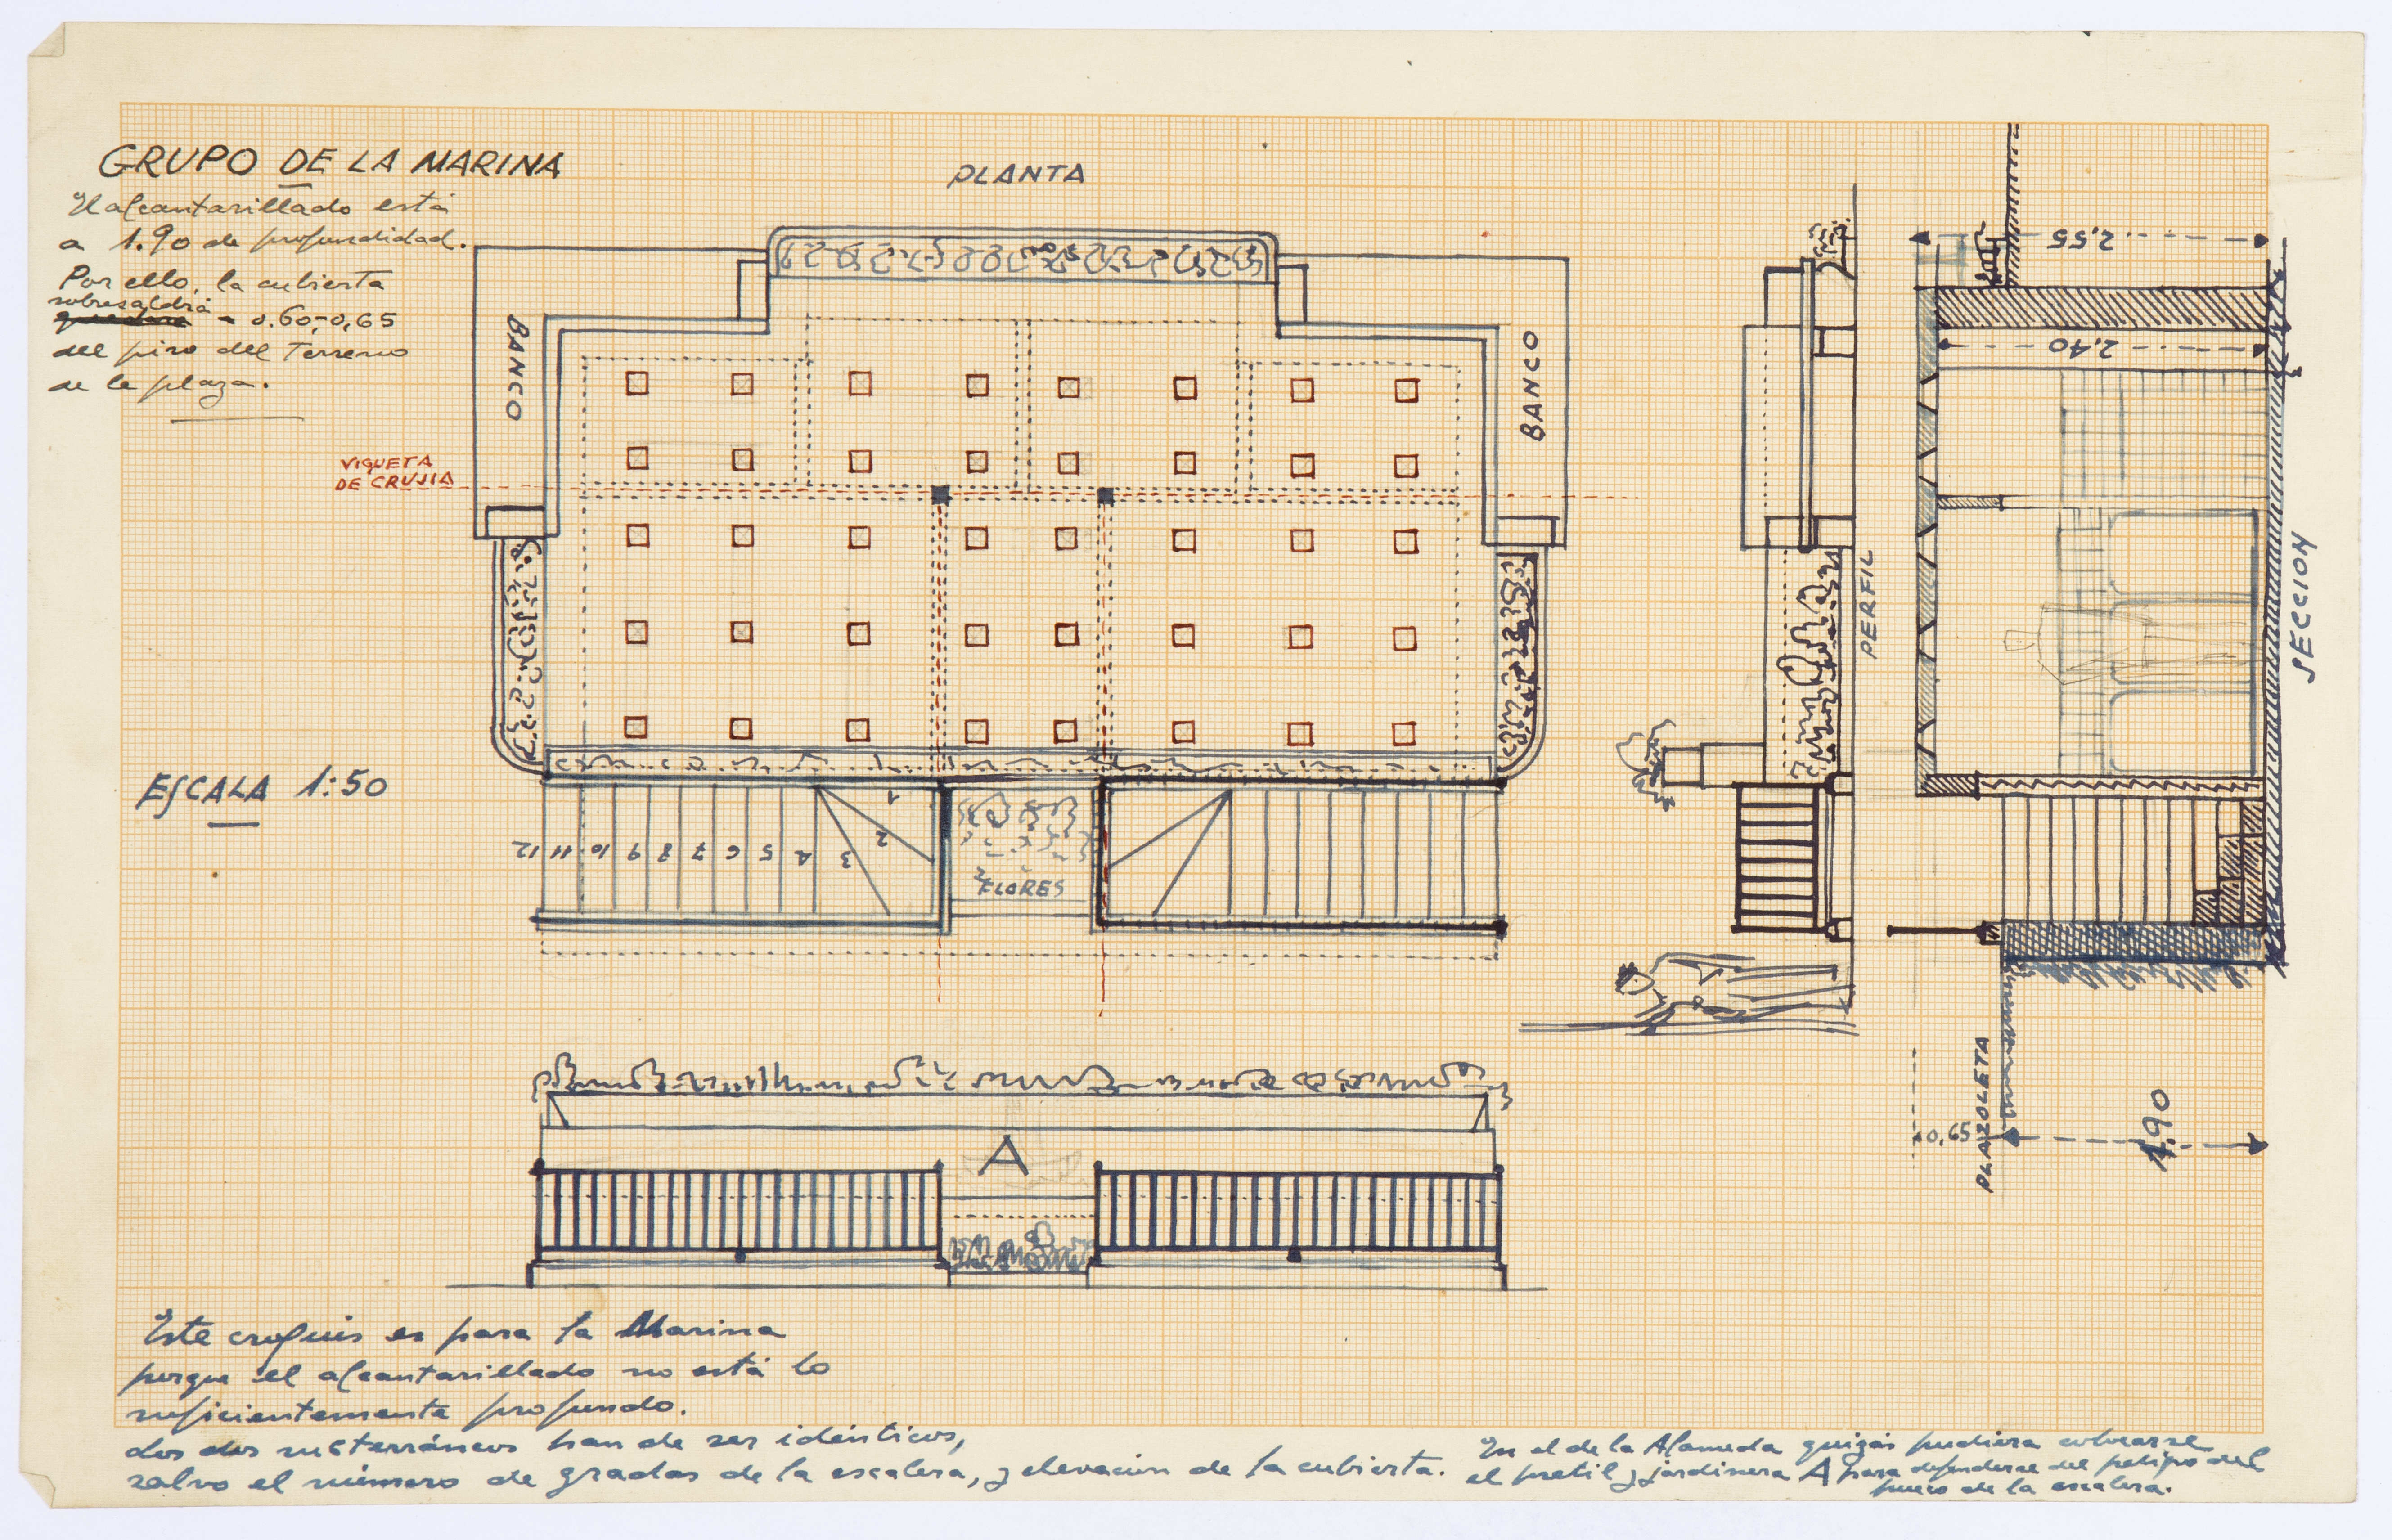 GRUPO DE LA MARINA
El alcantarillado está
a 1.90 de profundidad.
Por ello, la cubierta
sobresaldrá
a 0.60-0,65
del piso del Terreno
de la plaza.
PLANTA
BANCO
BANCO
VIGUETA
DE CRUJIA
ESCALA 1:50
12 11 10 9 8 7 6 5 4 3 2 1
FLORES
PERFIL
2,55
2,40
SECCION
PLAZOLETA
0,65
1,90
A
Este croquis es para la Marina
porque el alcantarillado no está lo
suficientemente profundo.
Los dos subterráneos han de ser idénticos,
salvo el número de gradas de la escalera, y elevación de la cubierta.
En el de la Alameda quizás pudiera colocarse
el pretil y jardinera A para defenderse del peligro del
hueco de la escalera.